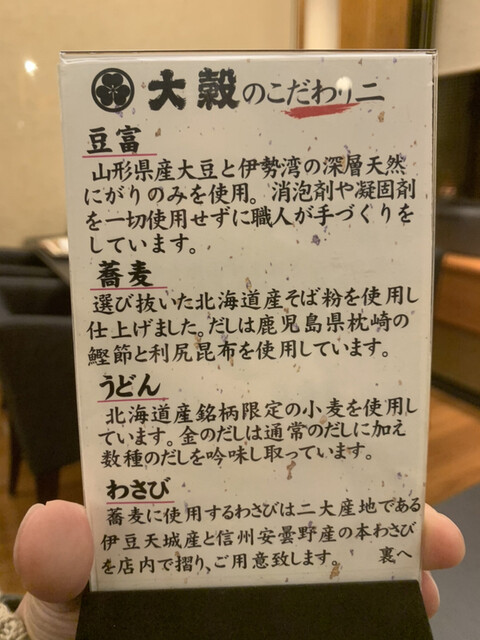 大穀のこだわり二
豆富
山形県産大豆と伊勢湾の深層天然
にがりのみを使用。消泡剤や凝固剤
を一切使用せずに職人が手づくりを
しています。
蕎麦
選び抜いた北海道産そば粉を使用し
仕上げました。だしは鹿児島県枕崎の
鰹節と利尻昆布を使用しています。
うどん
北海道産銘柄限定の小麦を使用し
ています。金のだしは通常のだしに加え
数種のだしを吟味し取っています。
わさび
蕎麦に使用するわさびは二大産地である
伊豆天城産と信州安曇野産の本わさび
を店内で摺り、ご用意致します。 裏へ